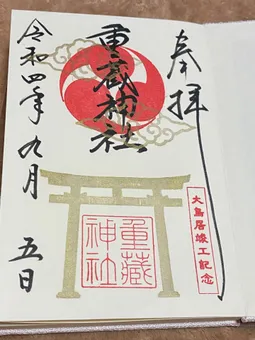 奉拝
大鳥居竣工記念
重蔵神社
重蔵
神社
令和四年九月五日